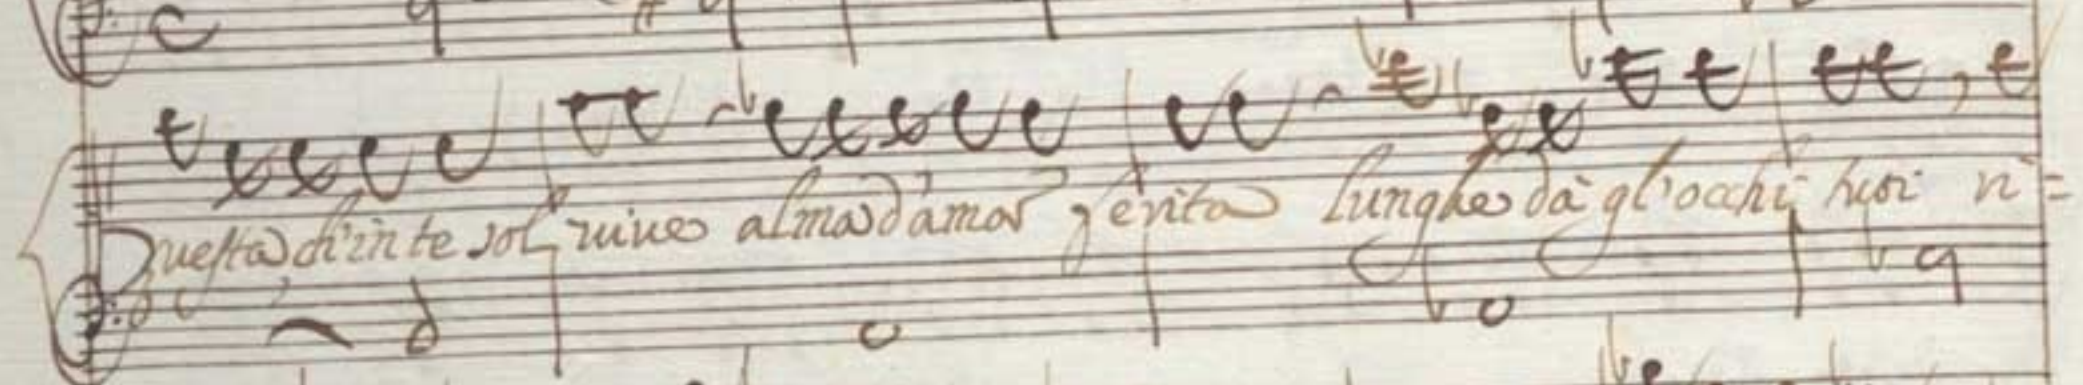 Questa ch'in te sol viue alma d'amor ferita lunghe dà gl'occhi tuoi ri=